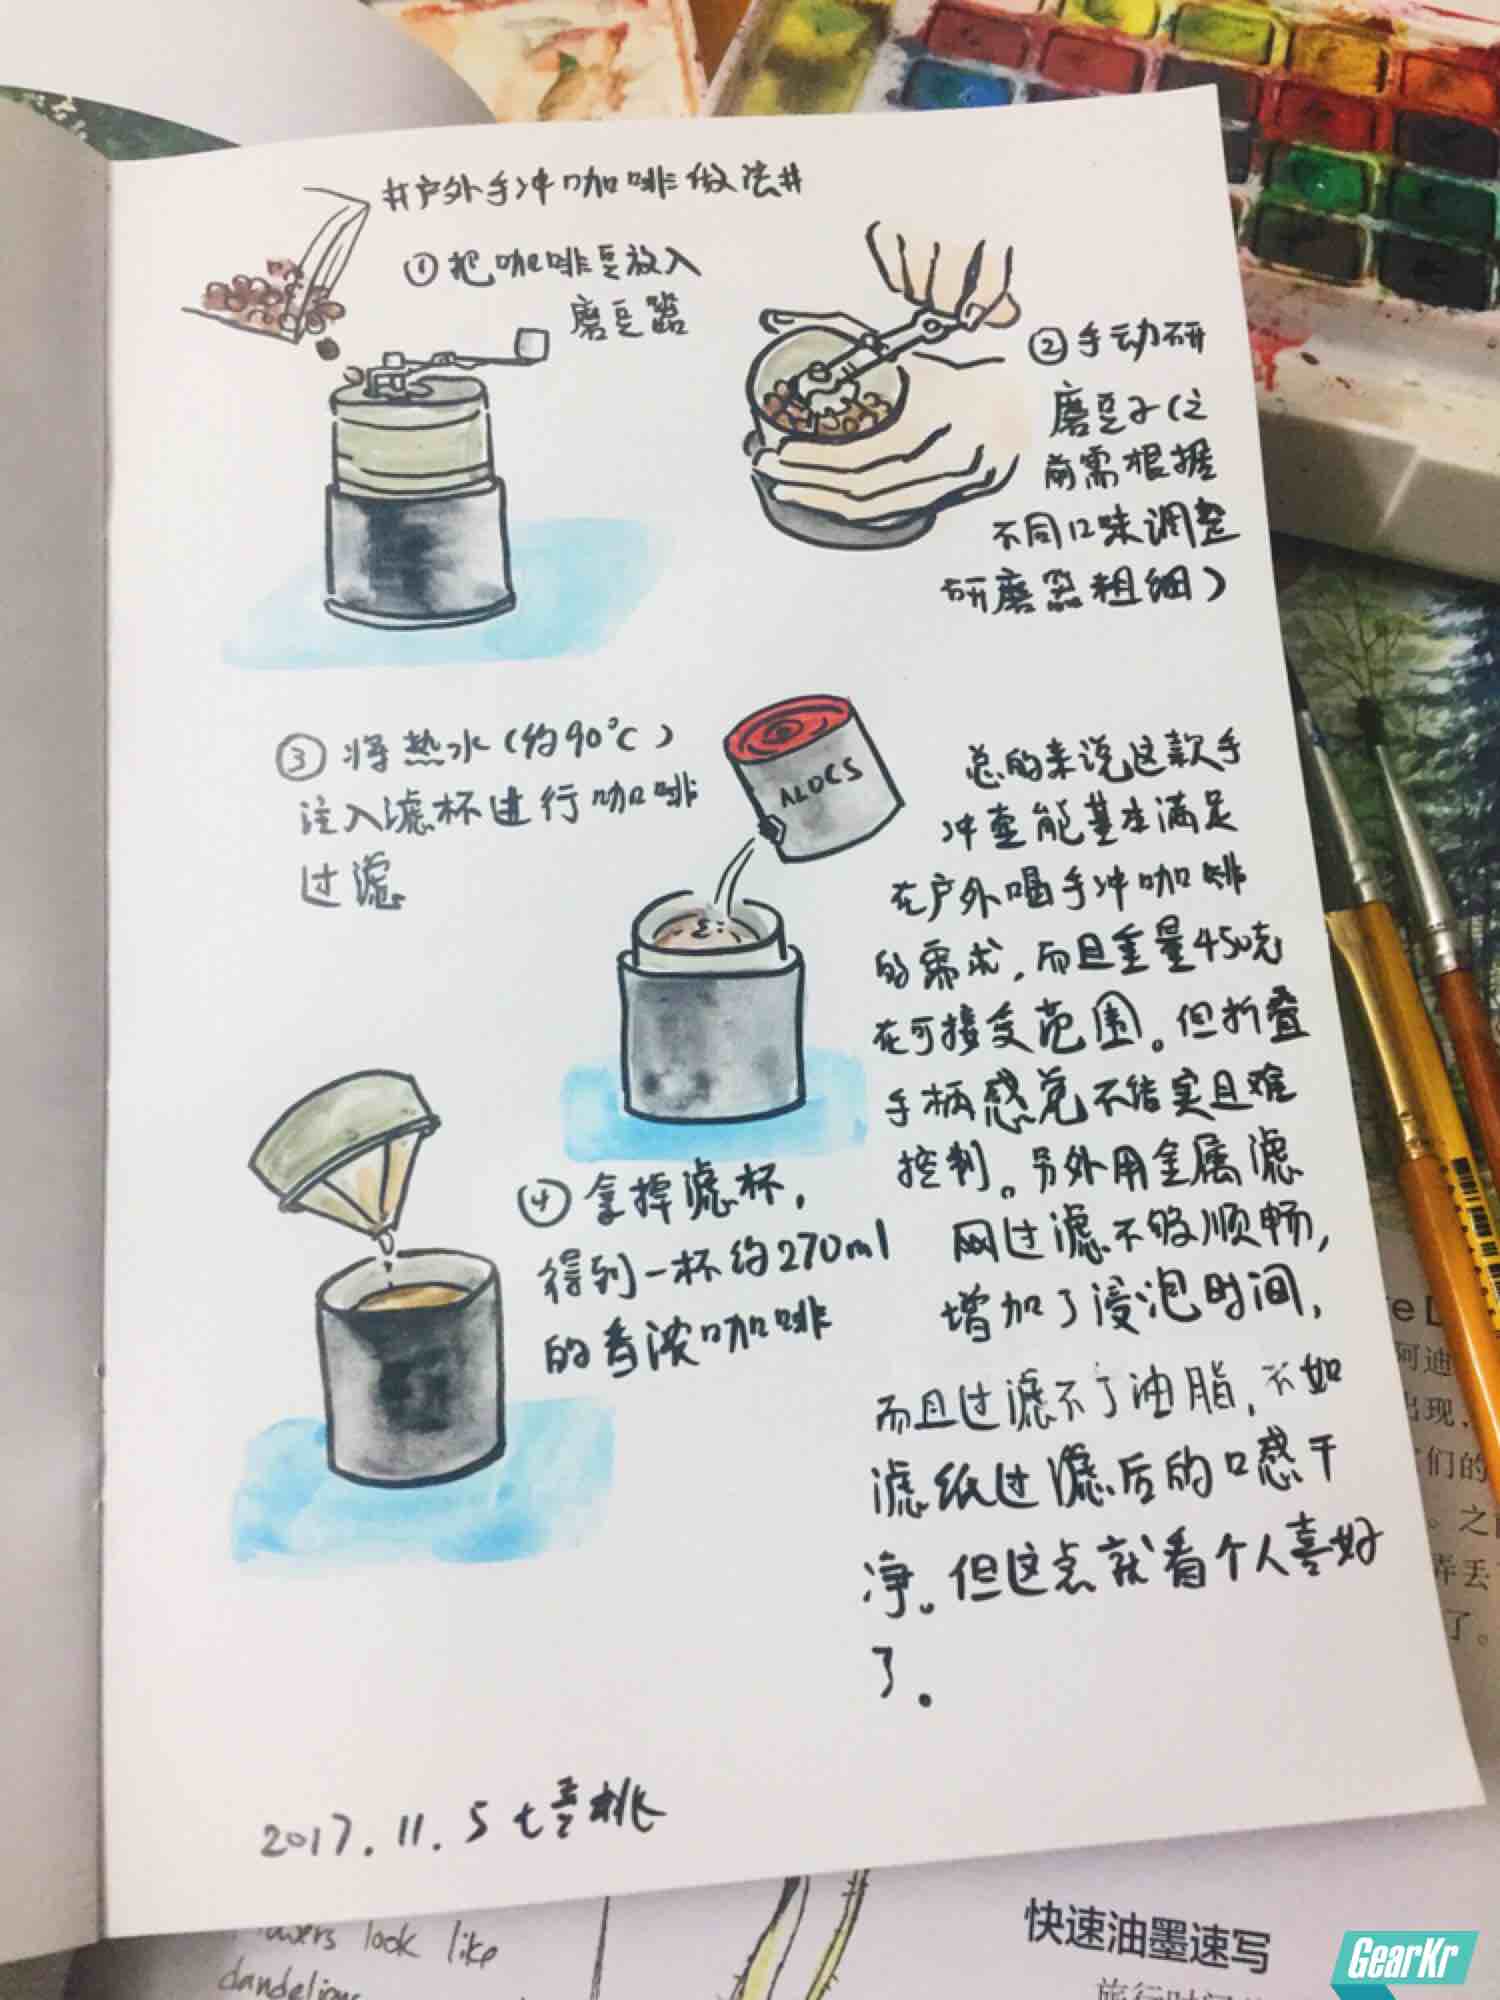 #户外手冲咖啡做法#
①把咖啡豆放入
磨豆器
②手动研
磨豆子(之
前需根据
不同口味调整
研磨器粗细)
③将热水(约90℃)
注入滤杯进行咖啡
过滤
ALOCS
④拿掉滤杯,
得到一杯约270ml
的香浓咖啡
总的来说这款手
冲壶能基本满足
在户外喝手冲咖啡
的需求,而且重量450克
在可接受范围。但折叠
手柄感觉不结实且难
控制。另外用金属滤
网过滤不够顺畅,
增加了浸泡时间,
而且过滤不了油脂,不如
滤纸过滤后的口感干
净。但这点就看个人喜好
了.
2017.11.5
阿迪
出现,
们的
。之
弄丢
了。
look like
快速油墨速写
旅行时间
GearKr